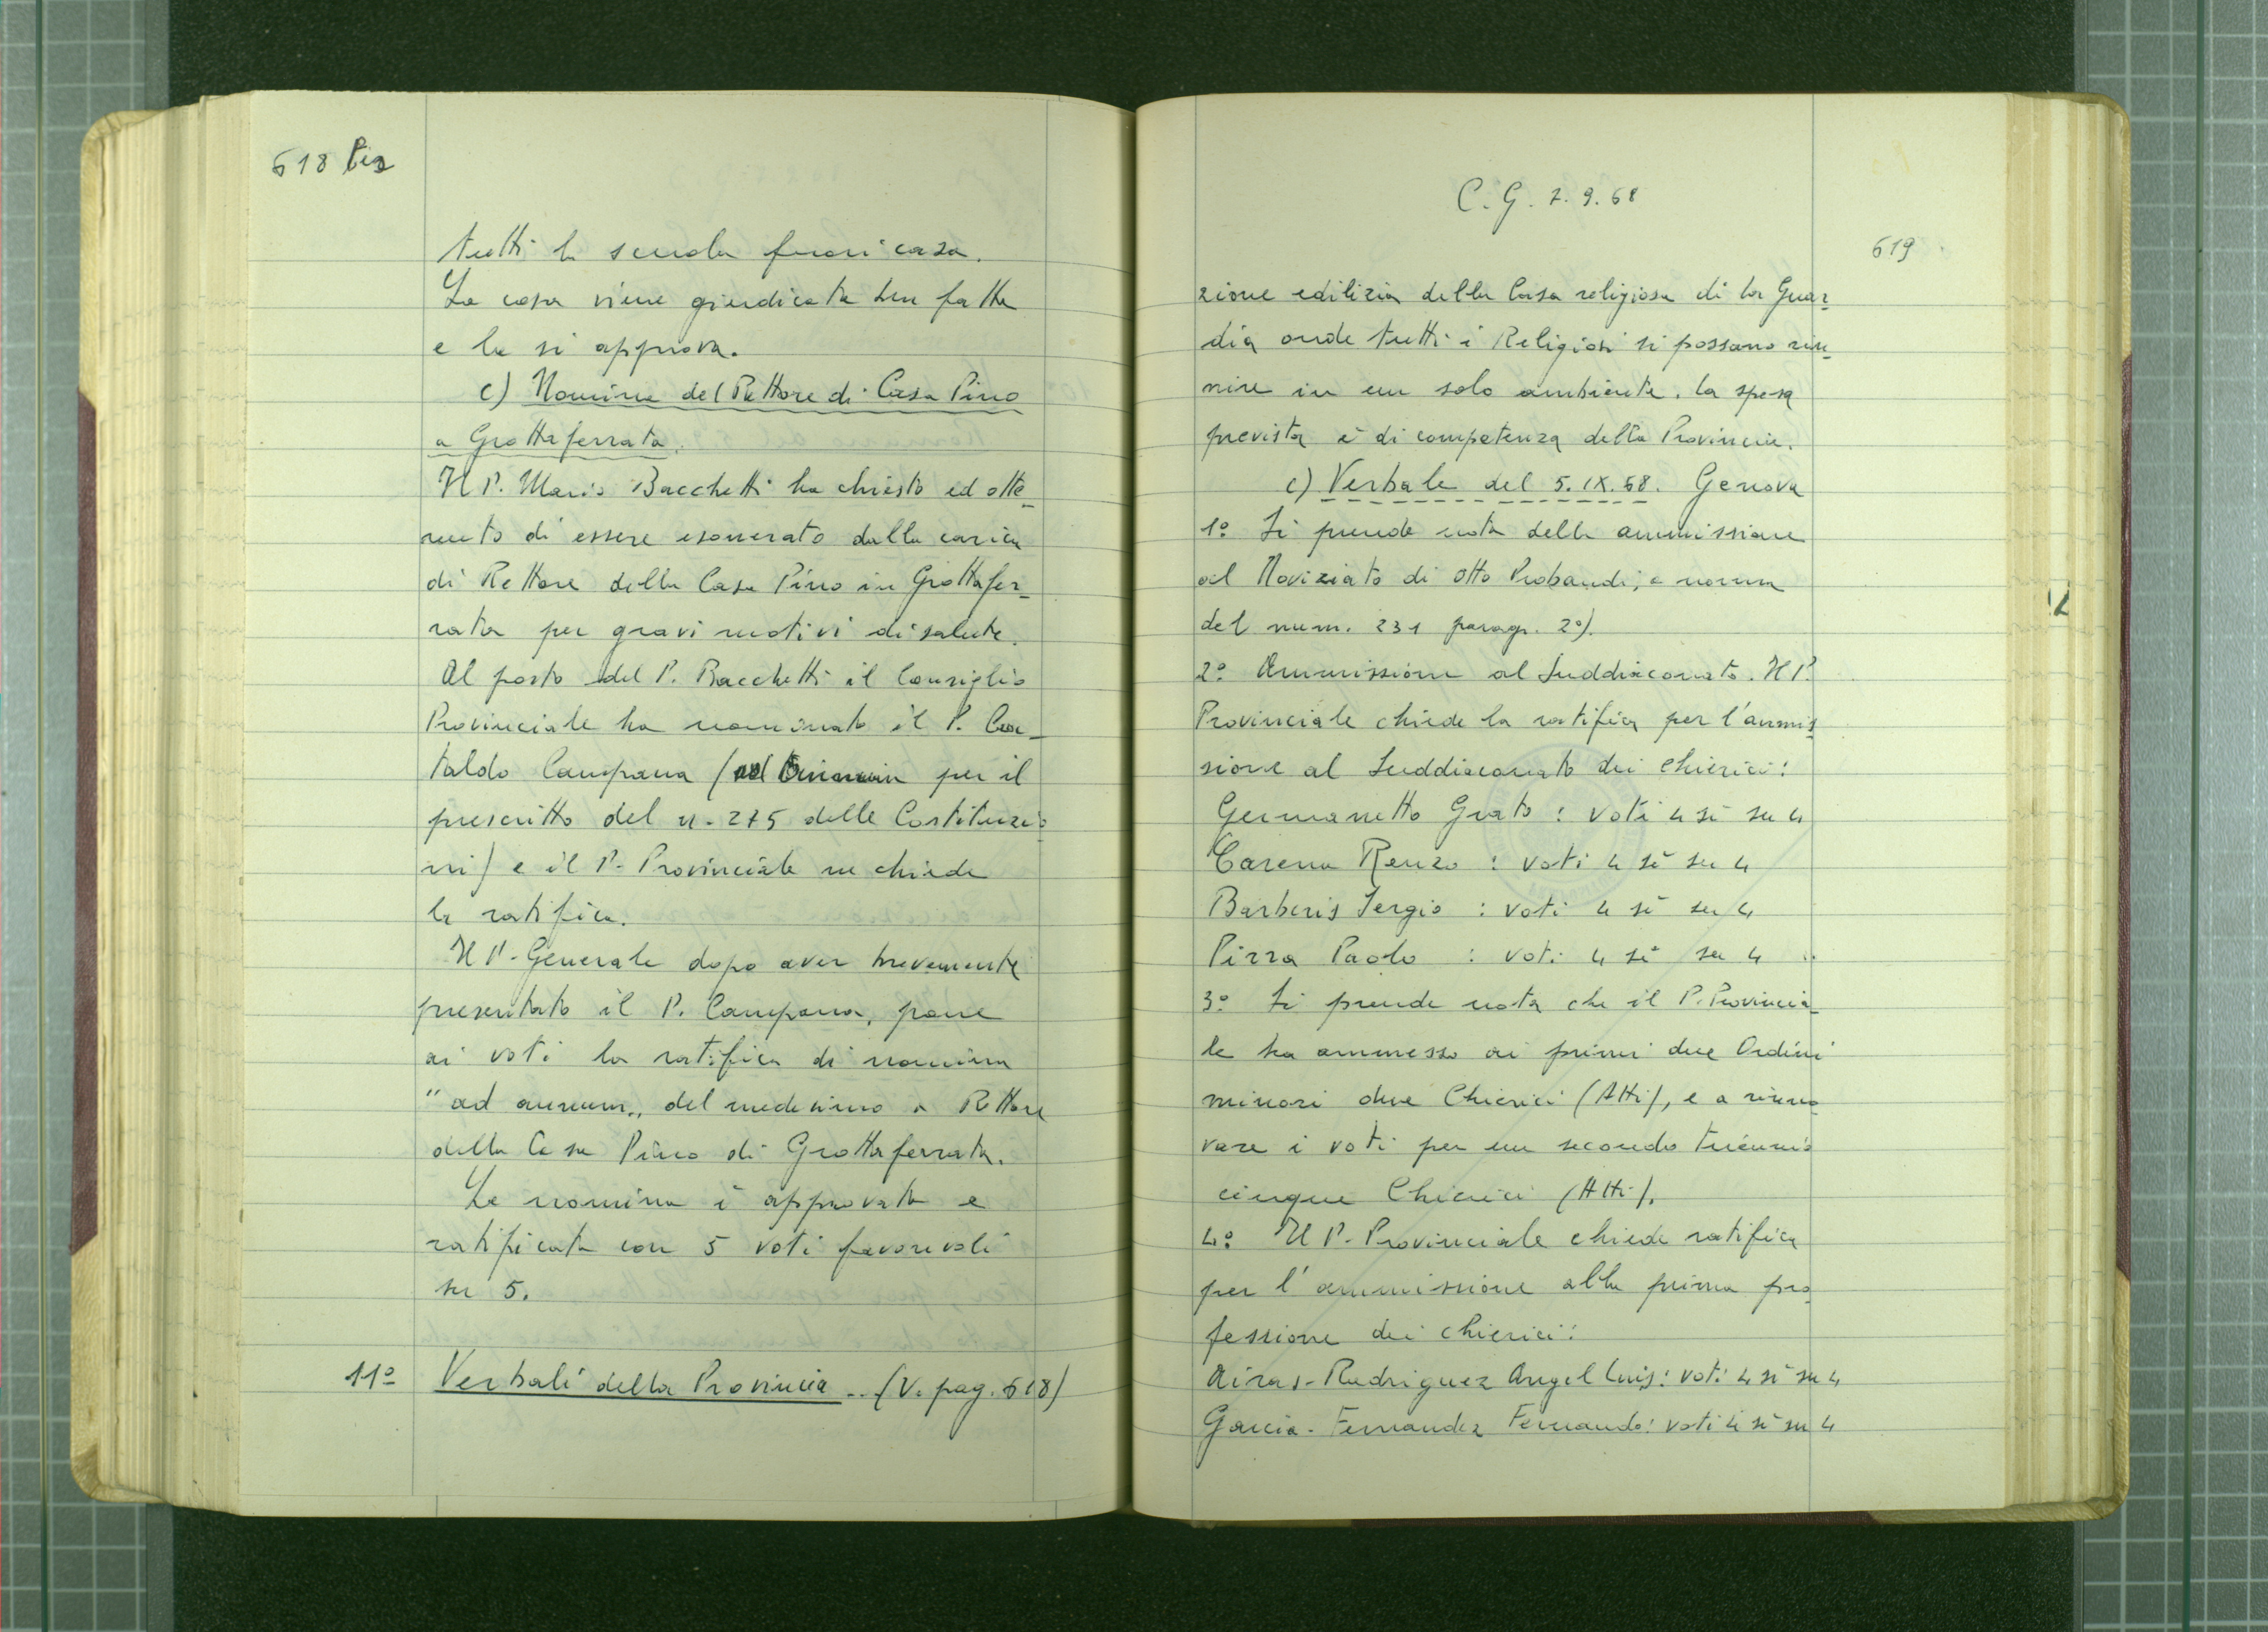 618 bis
tutti la scuola fuori casa.
La cosa viene giudicata ben fatta
e la si approva.
c) Nomina del Rettore di Casa Pino
a Grottaferrata.
Il P. Mario Bacchetti ha chiesto ed otte-
nuto di essere esonerato dalla carica
di Rettore della Casa Pino in Grottafer-
rata per gravi motivi di salute.
Al posto del P. Bacchetti il Consiglio
Provinciale ha nominato il P. Ca-
taldo Campana (ad per il
prescritto del n. 275 delle Costituzio
ni) e il P. Provinciale ne chiede
la ratifica.
Il P. Generale dopo aver brevemente
presentato il P. Campana, pone
ai voti la ratifica di nomina
"ad annum„ del medesimo a Rettore
della Casa Pino di Grottaferrata.
La nomina è approvata e
ratificata con 5 voti favorevoli
su 5.
11º Verbali della Provincia .. (V. pag. 618)
C.G. 7.9.68
619
zione edilizia della Casa religiosa di La Guar-
dia onde tutti i Religiosi si possano riu-
nire in un solo ambiente. La spesa
prevista è di competenza della Provincia.
c) Verbale del 5.IX.68. Genova
1º Si prende nota della ammissione
al Noviziato di otto Probandi, a norma
del num. 231 paragr. 2º).
2º Ammissione al Suddiaconato. Il P.
Provinciale chiede la ratifica per l'ammis
sione al Suddiaconato dei Chierici:
Germanetto Grato : voti 4 sì su 4
Carena Renzo : voti 4 sì su 4
Barberis Sergio : voti 4 sì su 4
Pizza Paolo : voti 4 sì su 4
3º Si prende nota che il P. Provincia-
le ha ammesso ai primi due Ordini
minori due Chierici (Atti), e a rinno
vare i voti per un secondo triennio
cinque Chierici (Atti).
4º Il P. Provinciale chiede ratifica
per l'ammissione alla prima pro
fessione dei chierici:
Airas-Rudriguez Angel Luis: voti 4 sì su 4
Garcia-Fernandez Fernando: voti 4 sì su 4